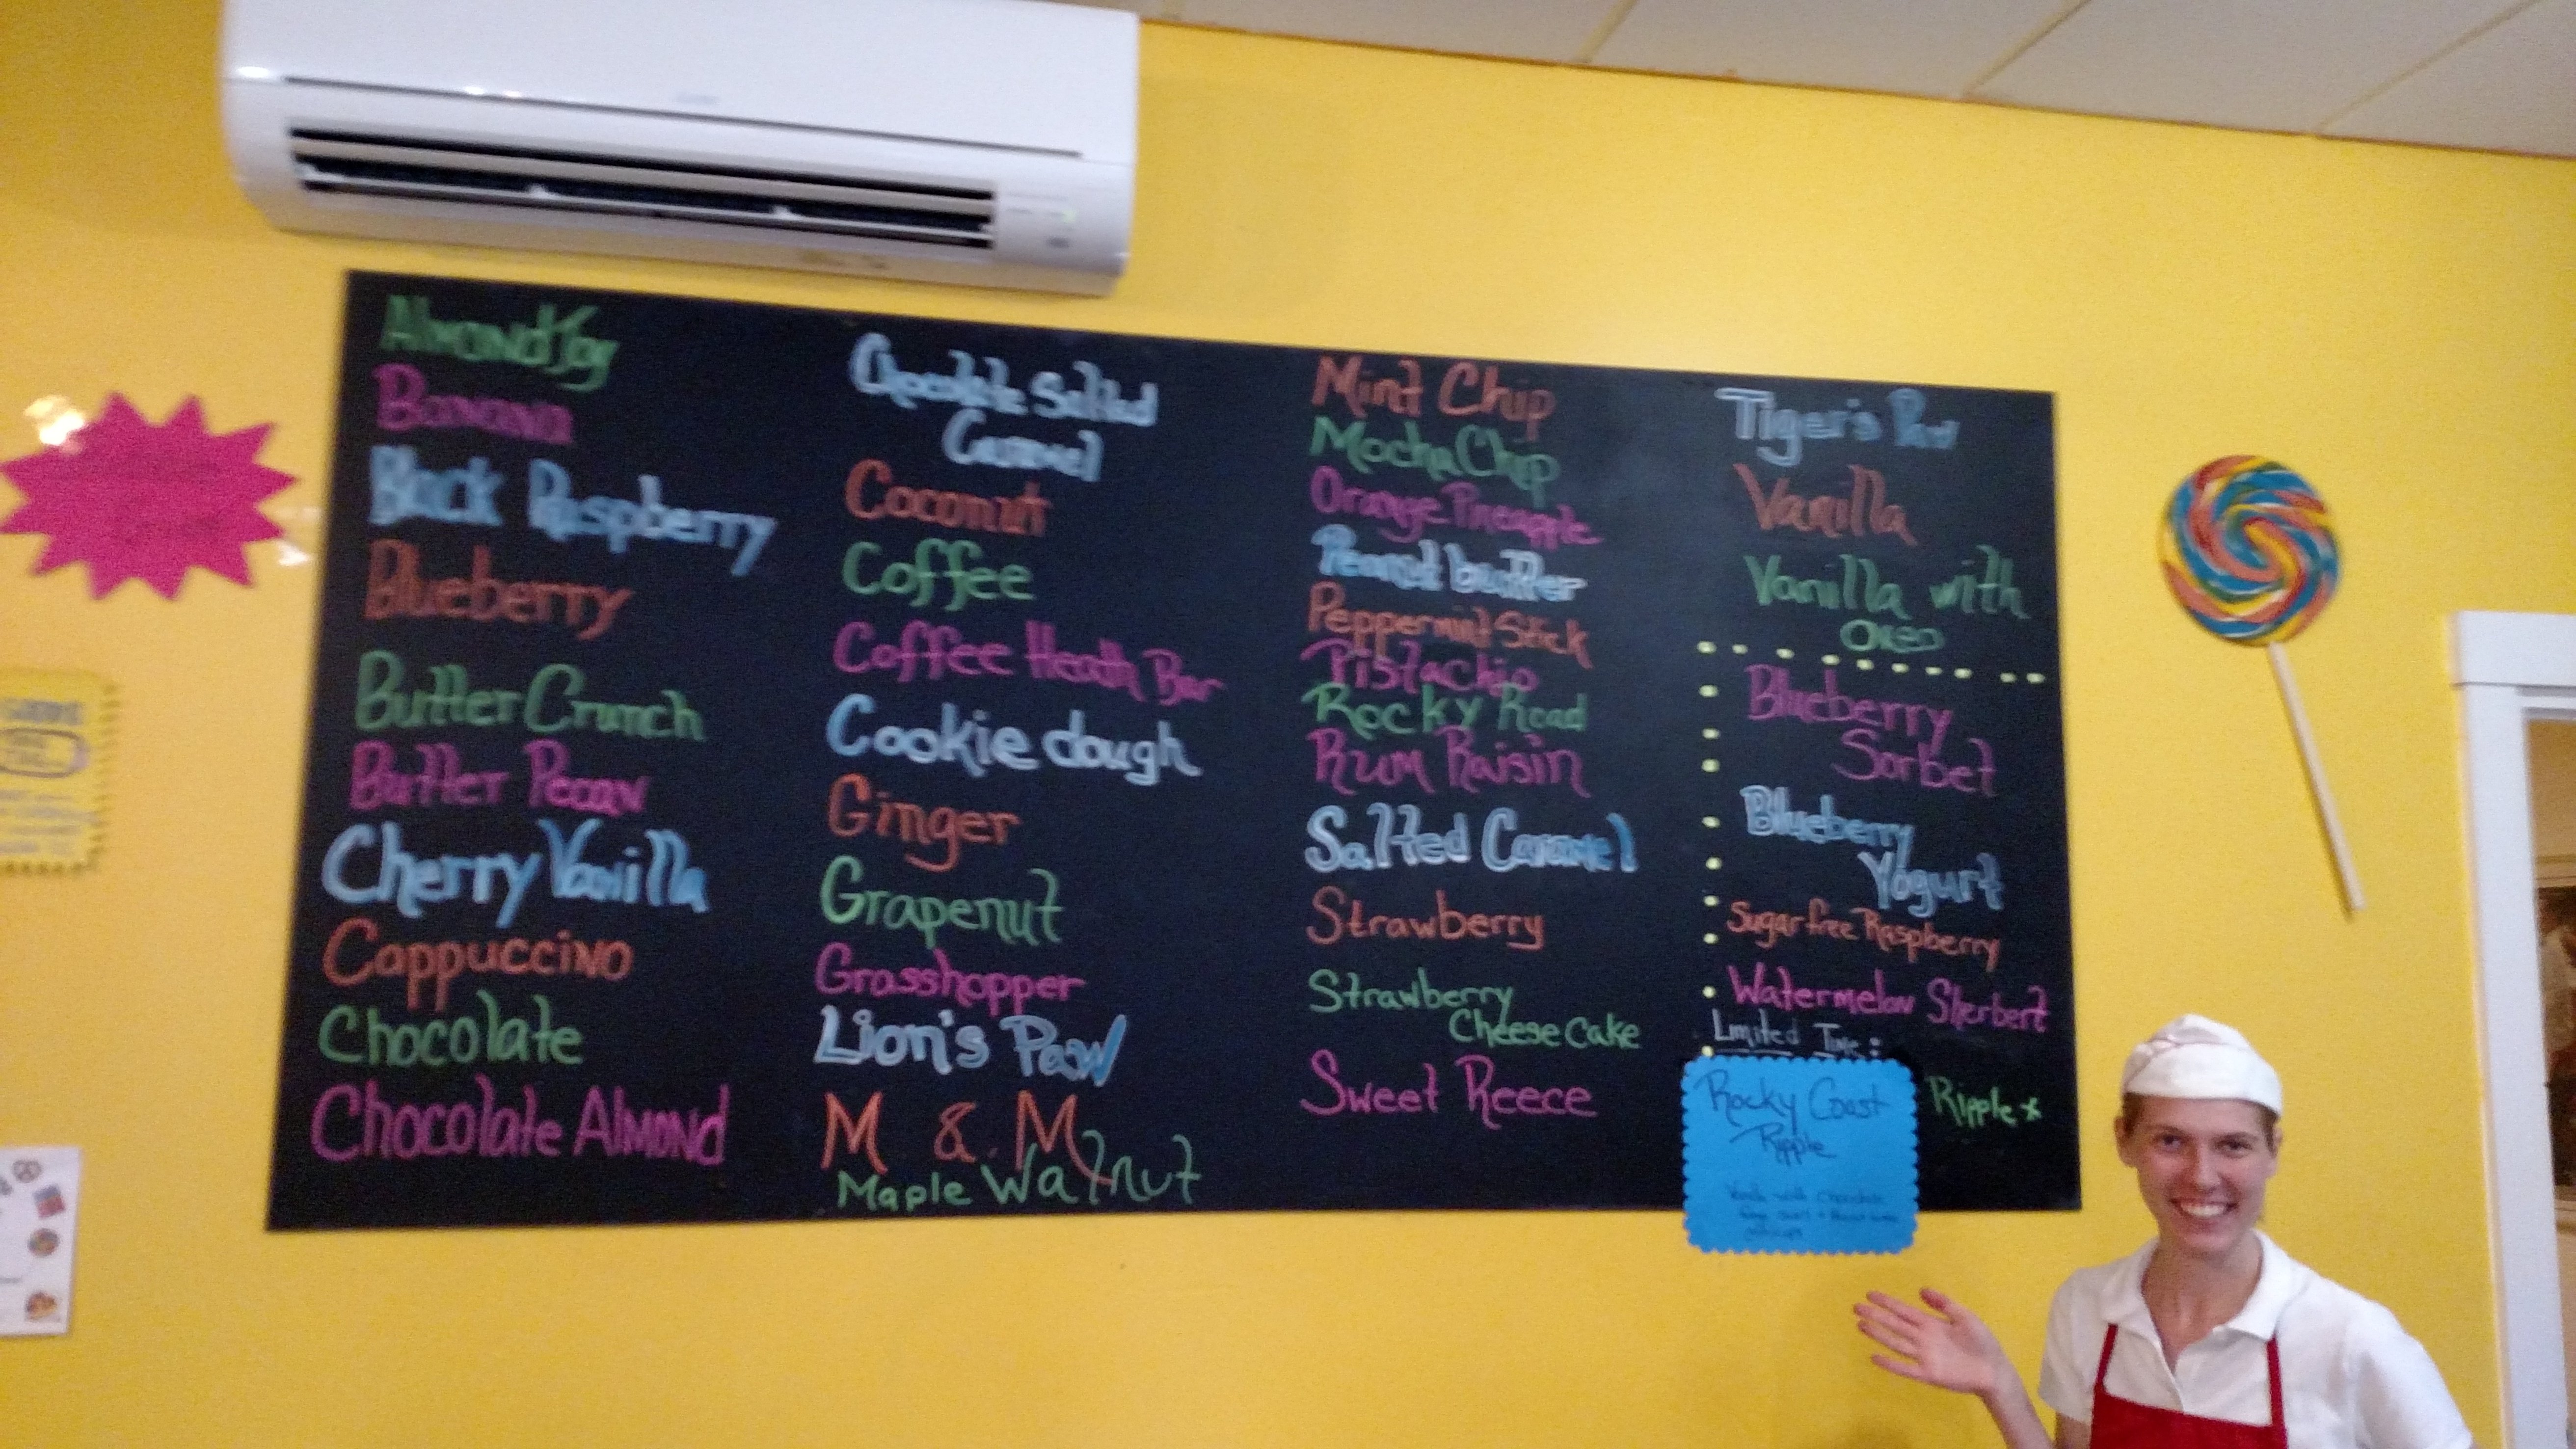 Almond Joy
Banana
Black Raspberry
Blueberry
Butter Crunch
Butter Pecan
Cherry Vanilla
Cappuccino
Chocolate
Chocolate Almond
Chocolate Salted
Caramel
Coconut
Coffee
Coffee Heath Bar
Cookie dough
Ginger
Grapenut
Grasshopper
Lion's Paw
M & M
Maple Walnut
Mint Chip
Mocha Chip
Orange Pineapple
Peanut butter
Peppermint Stick
Pistachio
Rocky Road
Rum Raisin
Salted Caramel
Strawberry
Strawberry
Cheese Cake
Sweet Reece
Tiger's Paw
Vanilla
Vanilla with
Oreo
Blueberry
Sorbet
Blueberry
Yogurt
Sugar free Raspberry
Watermelon Sherbert
Limited Time:
Rocky Coast
Ripple
Vanilla with chocolate
Ripple*